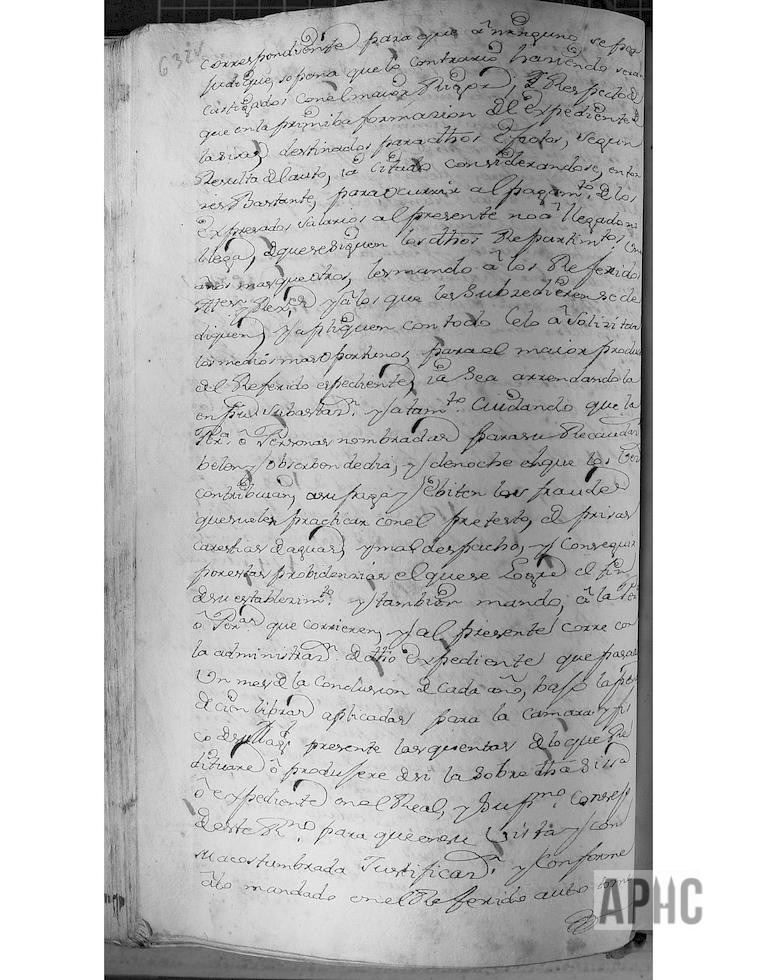 632v
correspondiente para que a ninguno se per
judique, so pena que lo contrario haciendo seran
castigados con el maior Rigor; Respecto
que en la primiba formasion del expediente
destinados para dhos Efectos, segun
Resulta del auto, ia Citado considerandose, enton
zes Bastante, para ocurrir al pagamto. de los
Expresados Salarios al presente no a llegado ni
llega, a que se siguen los dhos Repartimtos
años mas que otros, les mando a los Referidos
y Rexes. y a los que les Subzedieren se de
diquen, y apliquen con todo Celo a Solizitar
los medios mas oportunos, para el maior produc
del Referido expediente, ia Sea arrendandola
en Subastasn. Cuidando que la
Pera. o Personas nombradas para su Recaudasn
belen y obserben de dia, y de noche el que los
contribuian, a su paga y Ebiten los fraudes
que suelen practicar con el pretesto, de prisas
carestias de aguas, y mal despacho, y Conseguir
por estas probidenzias el que se Logre el fin
de su establezimto. y tambien mando, a la Pera
o Peras. que corrieren, y al presente corre con
la administrasn. de dho Expediente que pasado
Un mes de la Conclusion de Cada año, bajo la pena
de cien libras aplicadas para la Camara y fis
co de su Magd. presente las quentas de lo que Re
dituare o produsere de si la Sobre dha Sissa
o expediente en el Real, y Supmo. Consejo
de este Rno. para que en su Vista y con
su acostumbrada Justificasn. y Conforme
a lo mandado en el Referido auto tome
APHC